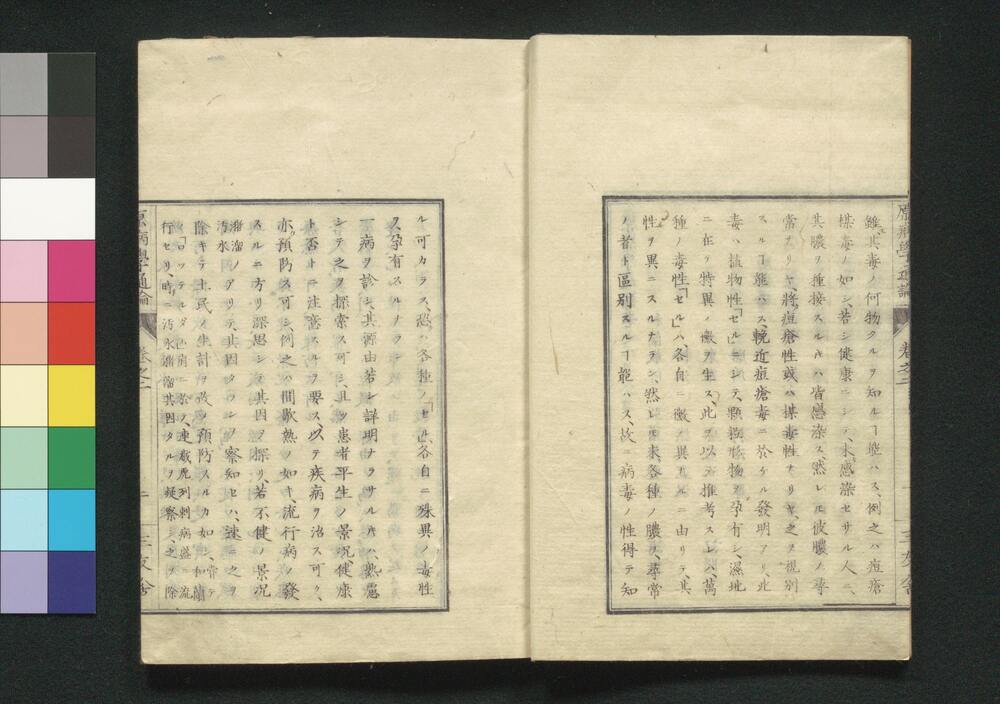 雖其毒ノ何物タルヲ知ルヿ能ハス、例之ハ痘瘡
楳毒ノ如シ、若シ健康ニシテ、未感染セサル人ニ、
其膿ヲ種接スルキハ皆感染ス、然レ𪜈彼膿ノ尋
常ナリヤ、將痘瘡性或ハ楳毒性ナリヤ之ヲ視別
スルヿ能ハス、輓近痘瘡毒ニ於ケル發明アリ此
毒ハ植物性「セル」ニシテ、顆𥻘物ヲ孕有シ、濕地
ニ在テ特異ノ黴ヲ生ス、此ヲ以テ推考スレハ、萬
種ノ毒性「セル」ハ、各自ニ黴ノ異ナルニ由リテ、其
性ヲ異ニスルナラン、然レ𪜈未各種ノ膿ヲ、尋常
ノ者ト區別スルヿ能ハス、故ニ病毒ノ性得テ知
ル可カラス、恐ハ各種ノ「セル」各自ニ殊異ノ毒性
ヲ孕有スルナラン
一病ヲ診シ、其源由若シ詳明ナラサルキハ、熟慮
シテ之ヲ探索ス可シ、且ツ患者平生ノ景況、健康
ト否トニ注意スルヲ要ス、以テ疾病ヲ治ス可ク、
亦預防ス可シ、例之ハ間歇熱ノ如キ、流行病ノ發
スルニ方リ深思シテ其因ヲ探リ、若不健ノ景況
瀦溜汚水ノアリテ、其因タワシヲ察知セハ、速ニ之ヲ
除キテ土民ノ生計ヲ改メ預防スルカ如シ
行セリ、時ニ汚水瀦溜其因タルヲ疑察シ、之ヲ除
原病學通論
卷之二